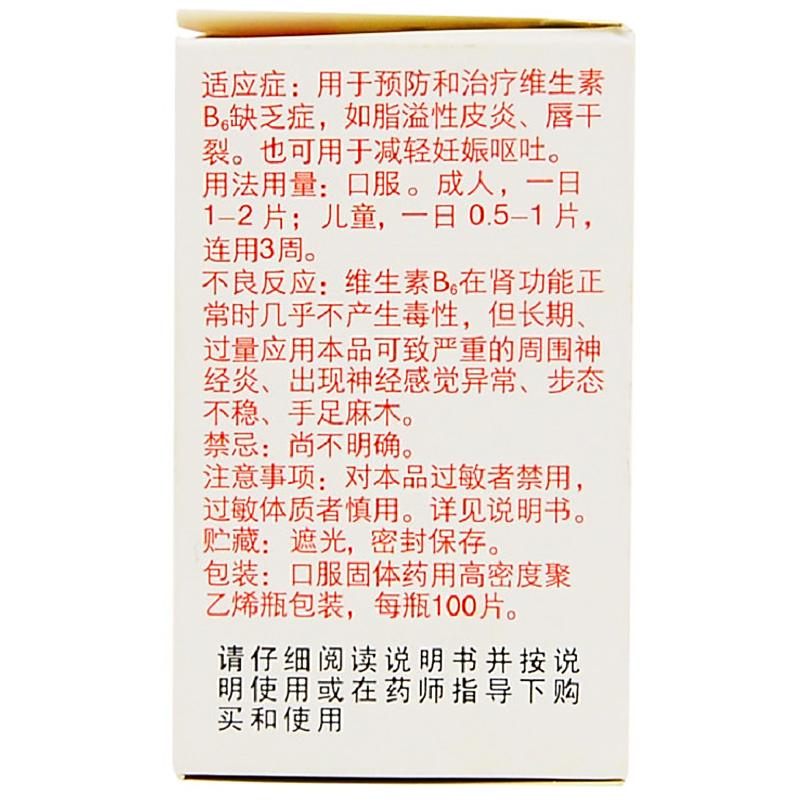 适应症：用于预防和治疗维生素
B₆缺乏症，如脂溢性皮炎、唇干
裂。也可用于减轻妊娠呕吐。
用法用量：口服。成人，一日
1-2片；儿童，一日0.5-1片，
连用3周。
不良反应：维生素B₆在肾功能正
常时几乎不产生毒性，但长期、
过量应用本品可致严重的周围神
经炎、出现神经感觉异常、步态
不稳、手足麻木。
禁忌：尚不明确。
注意事项：对本品过敏者禁用，
过敏体质者慎用。详见说明书。
贮藏：遮光，密封保存。
包装：口服固体药用高密度聚
乙烯瓶包装，每瓶100片。
请仔细阅读说明书并按说
明使用或在药师指导下购
买和使用